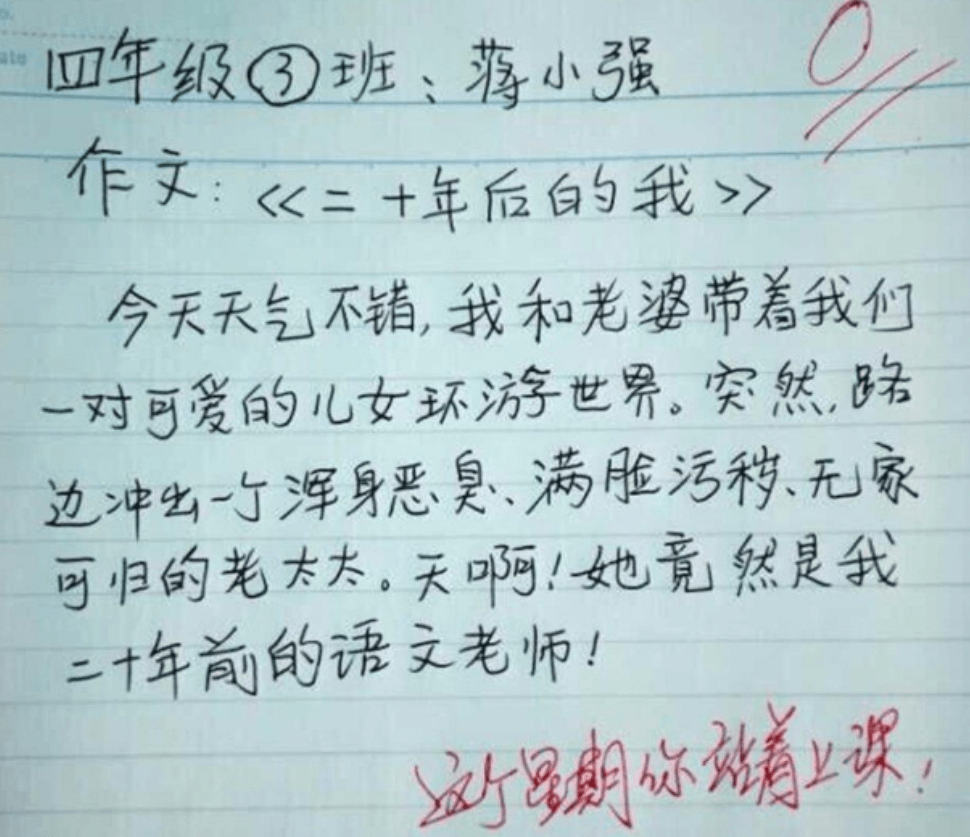 四年级③班：蒋小强
作文：<<二十年后的我>>
今天天气不错，我和老婆带着我们
一对可爱的儿女环游世界。突然，路
边冲出一个浑身恶臭、满脸污秽、无家
可归的老太太。天啊！她竟然是我
二十年前的语文老师！
这个星期你站着上课！
0